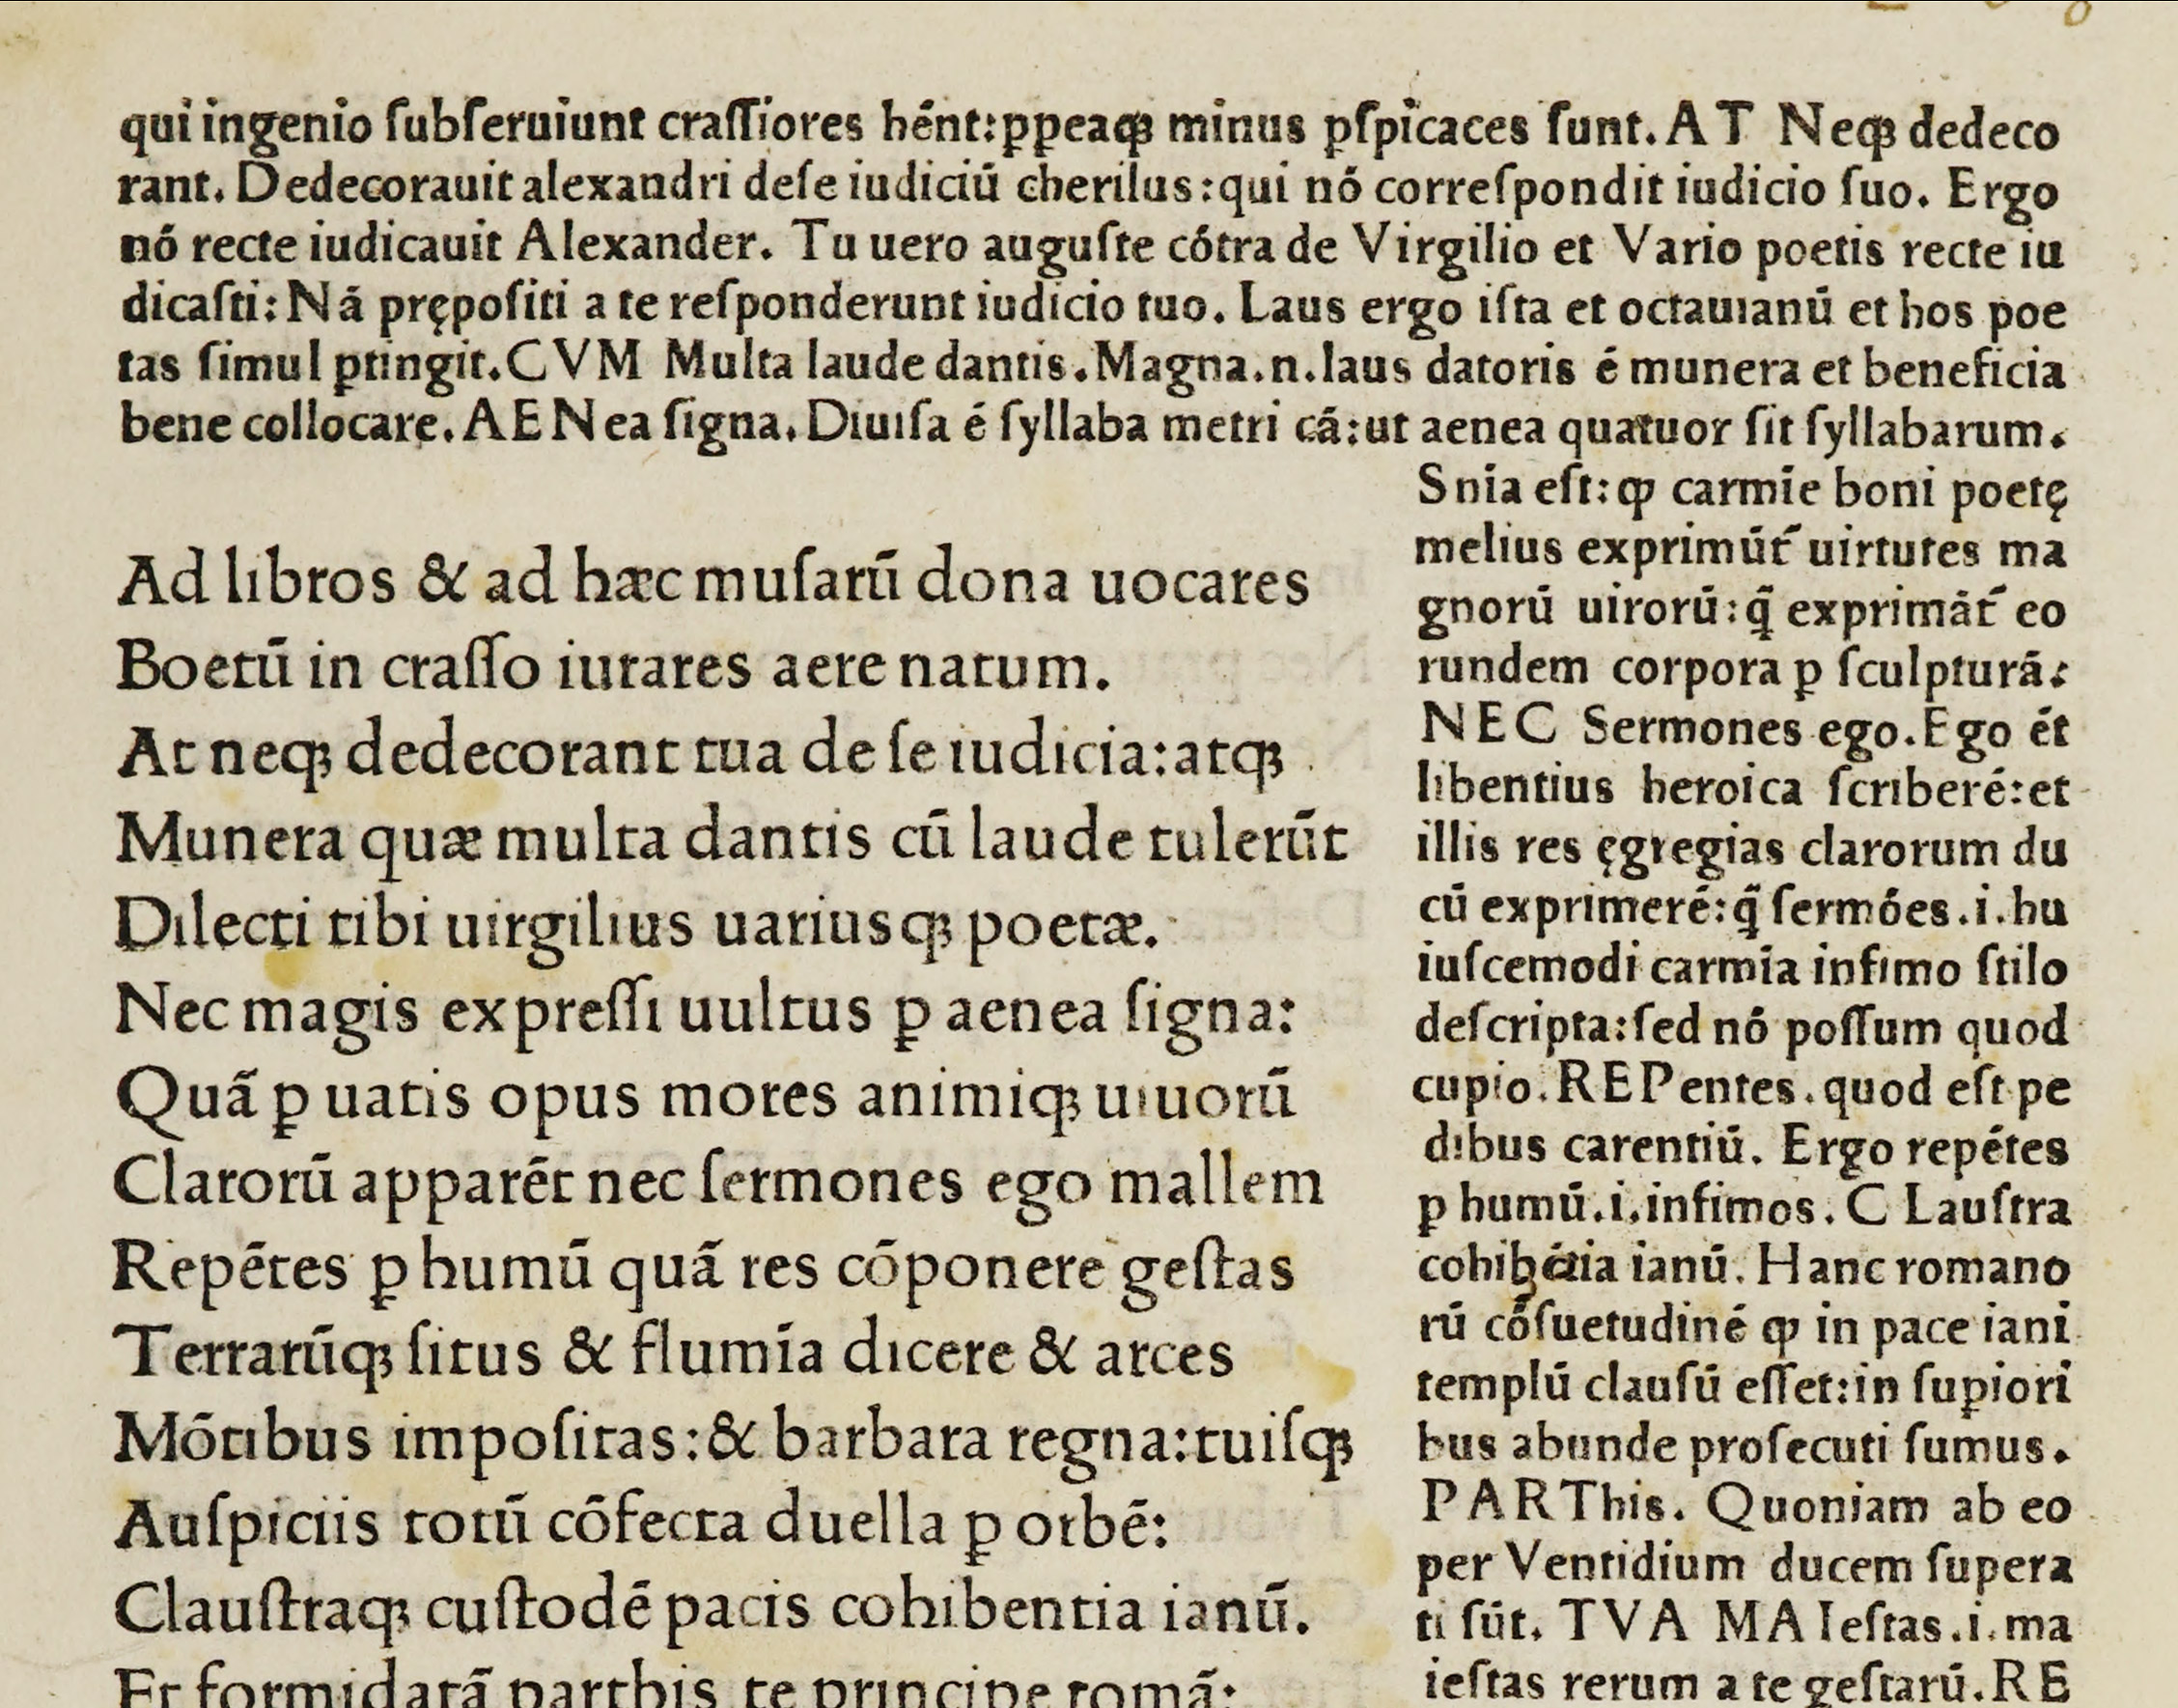 qui ingenio ſubſeruiunt craſſiores hēnt:ꝓpeaqꝫ minus ꝑſpicaces ſunt. AT Neqꝫ dedeco
rant. Dedecorauit alexandri deſe iudiciū cherilus:qui nō correſpondit iudicio ſuo. Ergo
nō recte iudicauit Alexander. Tu uero auguſte cōtra de Virgilio et Vario poetis recte iu
dicaſti: Nā prępoſiti a te reſponderunt iudicio tuo. Laus ergo iſta et octauianū et hos poe
tas ſimul ꝑtingit. CVM Multa laude dantis. Magna.n.laus datoris ē munera et beneficia
bene collocare. AENea ſigna. Diuiſa ē ſyllaba metri cā:ut aenea quatuor ſit ſyllabarum.
Ad libros & ad hæc muſarū dona uocares
Boetū in craſſo iurares aere natum.
At neqꝫ dedecorant tua de ſe iudicia:atqꝫ
Munera quæ multa dantis cū laude tulerūt
Dilecti tibi uirgilius uariusqꝫ poetæ.
Nec magis expreſſi uultus ꝑ aenea ſigna:
Quā ꝑ uatis opus mores animiqꝫ uiuorū
Clarorū apparēt nec ſermones ego mallem
Repētes ꝑ humū quā res cōponere geſtas
Terrarūqꝫ ſitus & flumīa dicere & arces
Mōtibus impoſitas:& barbara regna:tuiſqꝫ
Auſpiciis totū cōfecta duella ꝑ orbē:
Clauſtraqꝫ cuſtodē pacis cohibentia ianū.
Et formidatā parthis te principe romā:
Snia eſt:ꝙ carmīe boni poetę
melius exprimūt᷑ uirtutes ma
gnorū uirorū:q̄ exprimāt᷑ eo
rundem corpora ꝑ ſculpturā:
NEC Sermones ego. Ego ēt
libentius heroica ſcriberē:et
illis res ęgregias clarorum du
cū exprimerē:q̄ ſermōes.i.hu
iuſcemodi carmīa infimo ſtilo
deſcripta:ſed nō poſſum quod
cupio. REPentes.quod eſt pe
dibus carentiū. Ergo repētes
ꝑ humū.i.infimos. CLauſtra
cohibētia ianū. Hanc romano
rū cōſuetudinē ꝙ in pace iani
templū clauſū eſſet:in ſuꝑiori
bus abunde proſecuti ſumus.
PARThis. Quoniam ab eo
per Ventidium ducem ſupera
ti ſūt. TVA MAIeſtas.i.ma
ieſtas rerum a te geſtarū. RE